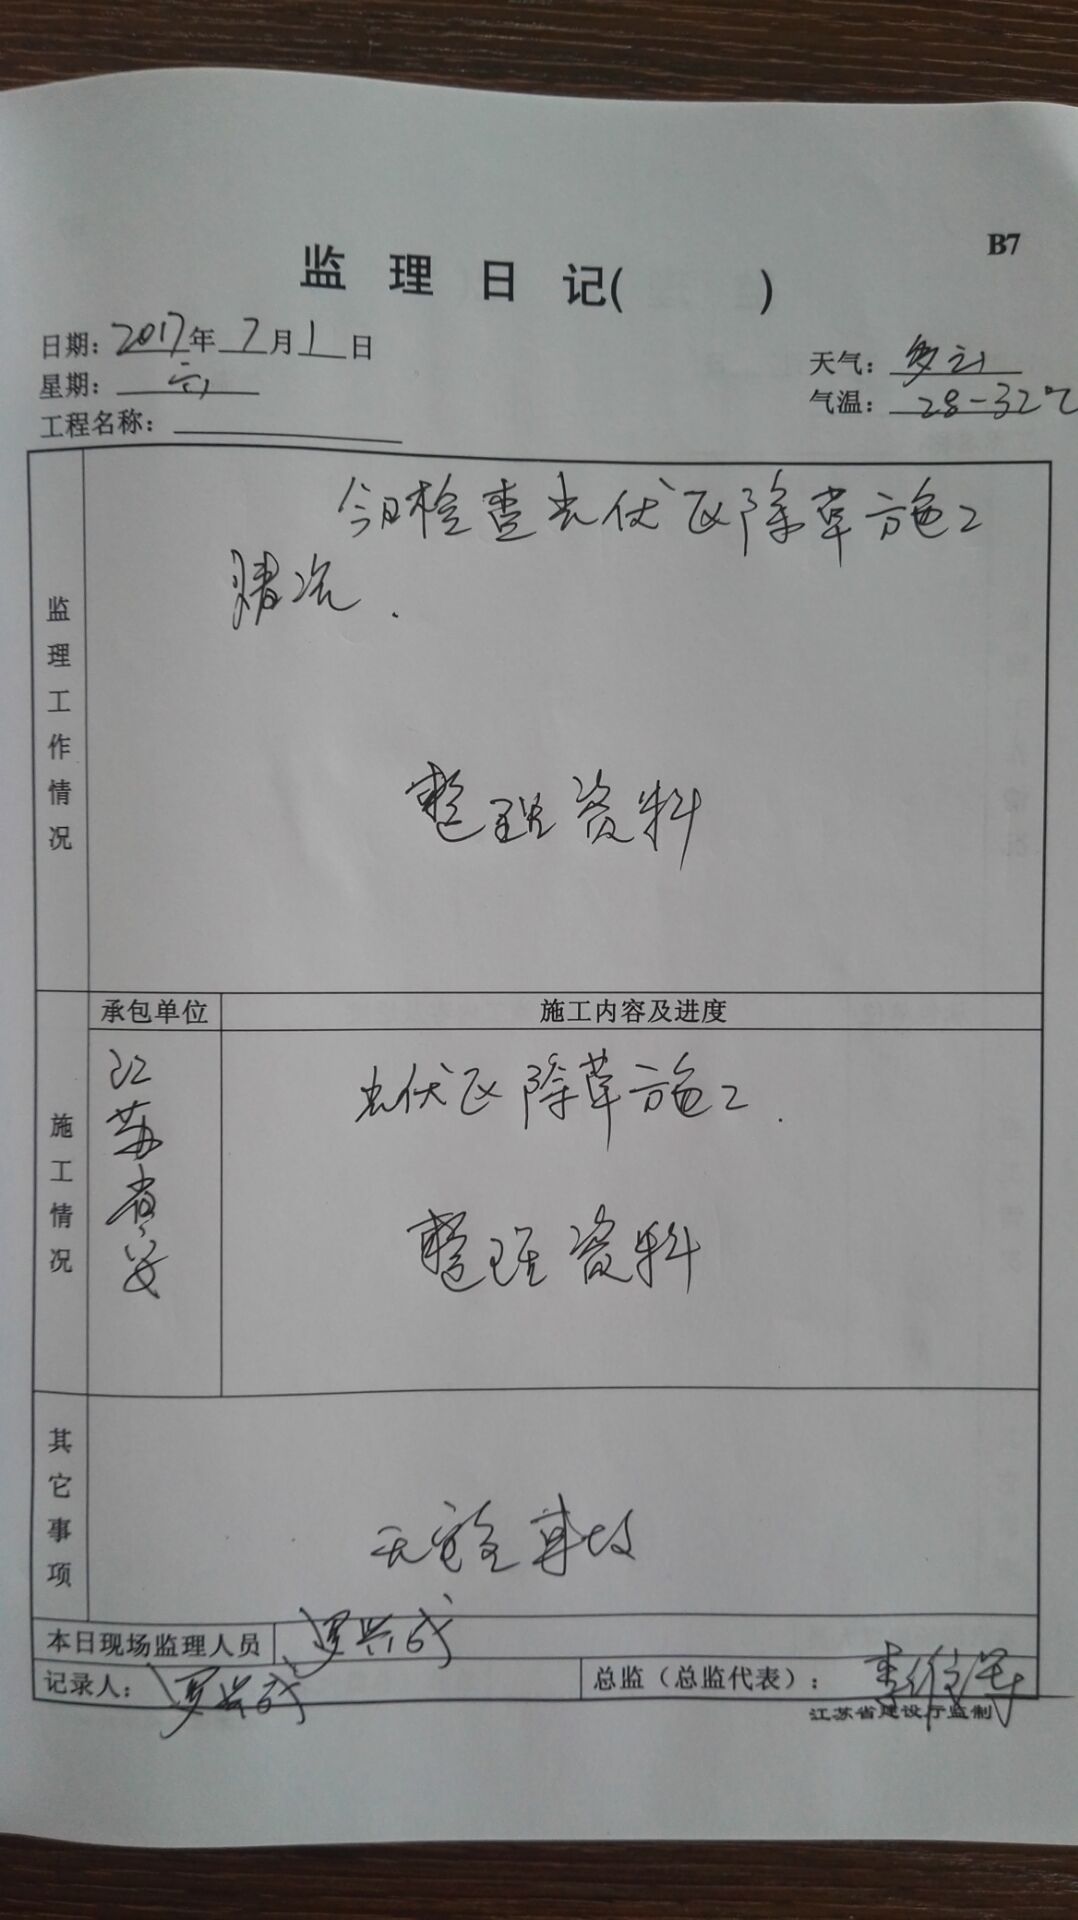 B7
监理日记( )
日期：2017年7月1日
天气：多云
星期：六
气温：28-32℃
工程名称：
监理工作情况
今日检查光伏区除草施工
情况.
整理资料
施工情况
承包单位
施工内容及进度
江苏省安
光伏区除草施工.
整理资料
其它事项
无安全事故
本日现场监理人员
罗兴成
记录人：罗兴成
总监（总监代表）：
江苏省建设厅监制